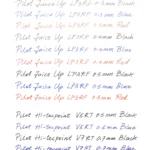 Pilot Juice Up LP3RF 0.3mm Black
Pilot Juice Up LP3RF 0.3mm Blue
Pilot Juice Up LP3RF 0.3mm Red
Pilot Juice Up LP3RF 0.4mm Black
Pilot Juice Up LP3RF 0.4mm Blue
Pilot Juice Up LP3RF 0.4mm Red
Pilot Juice Up LP3RF 0.5mm Black
Pilot Juice Up LP3RF 0.5mm Blue
Pilot Juice Up LP3RF 0.5mm Red
Pilot Hi-Tecpoint V5RT 0.5mm Black
Pilot Hi-Tecpoint V5RT 0.5mm Blue
Pilot Hi-Tecpoint V7RT 0.7mm Black
Pilot Hi-Tecpoint V7RT 0.7mm Blue